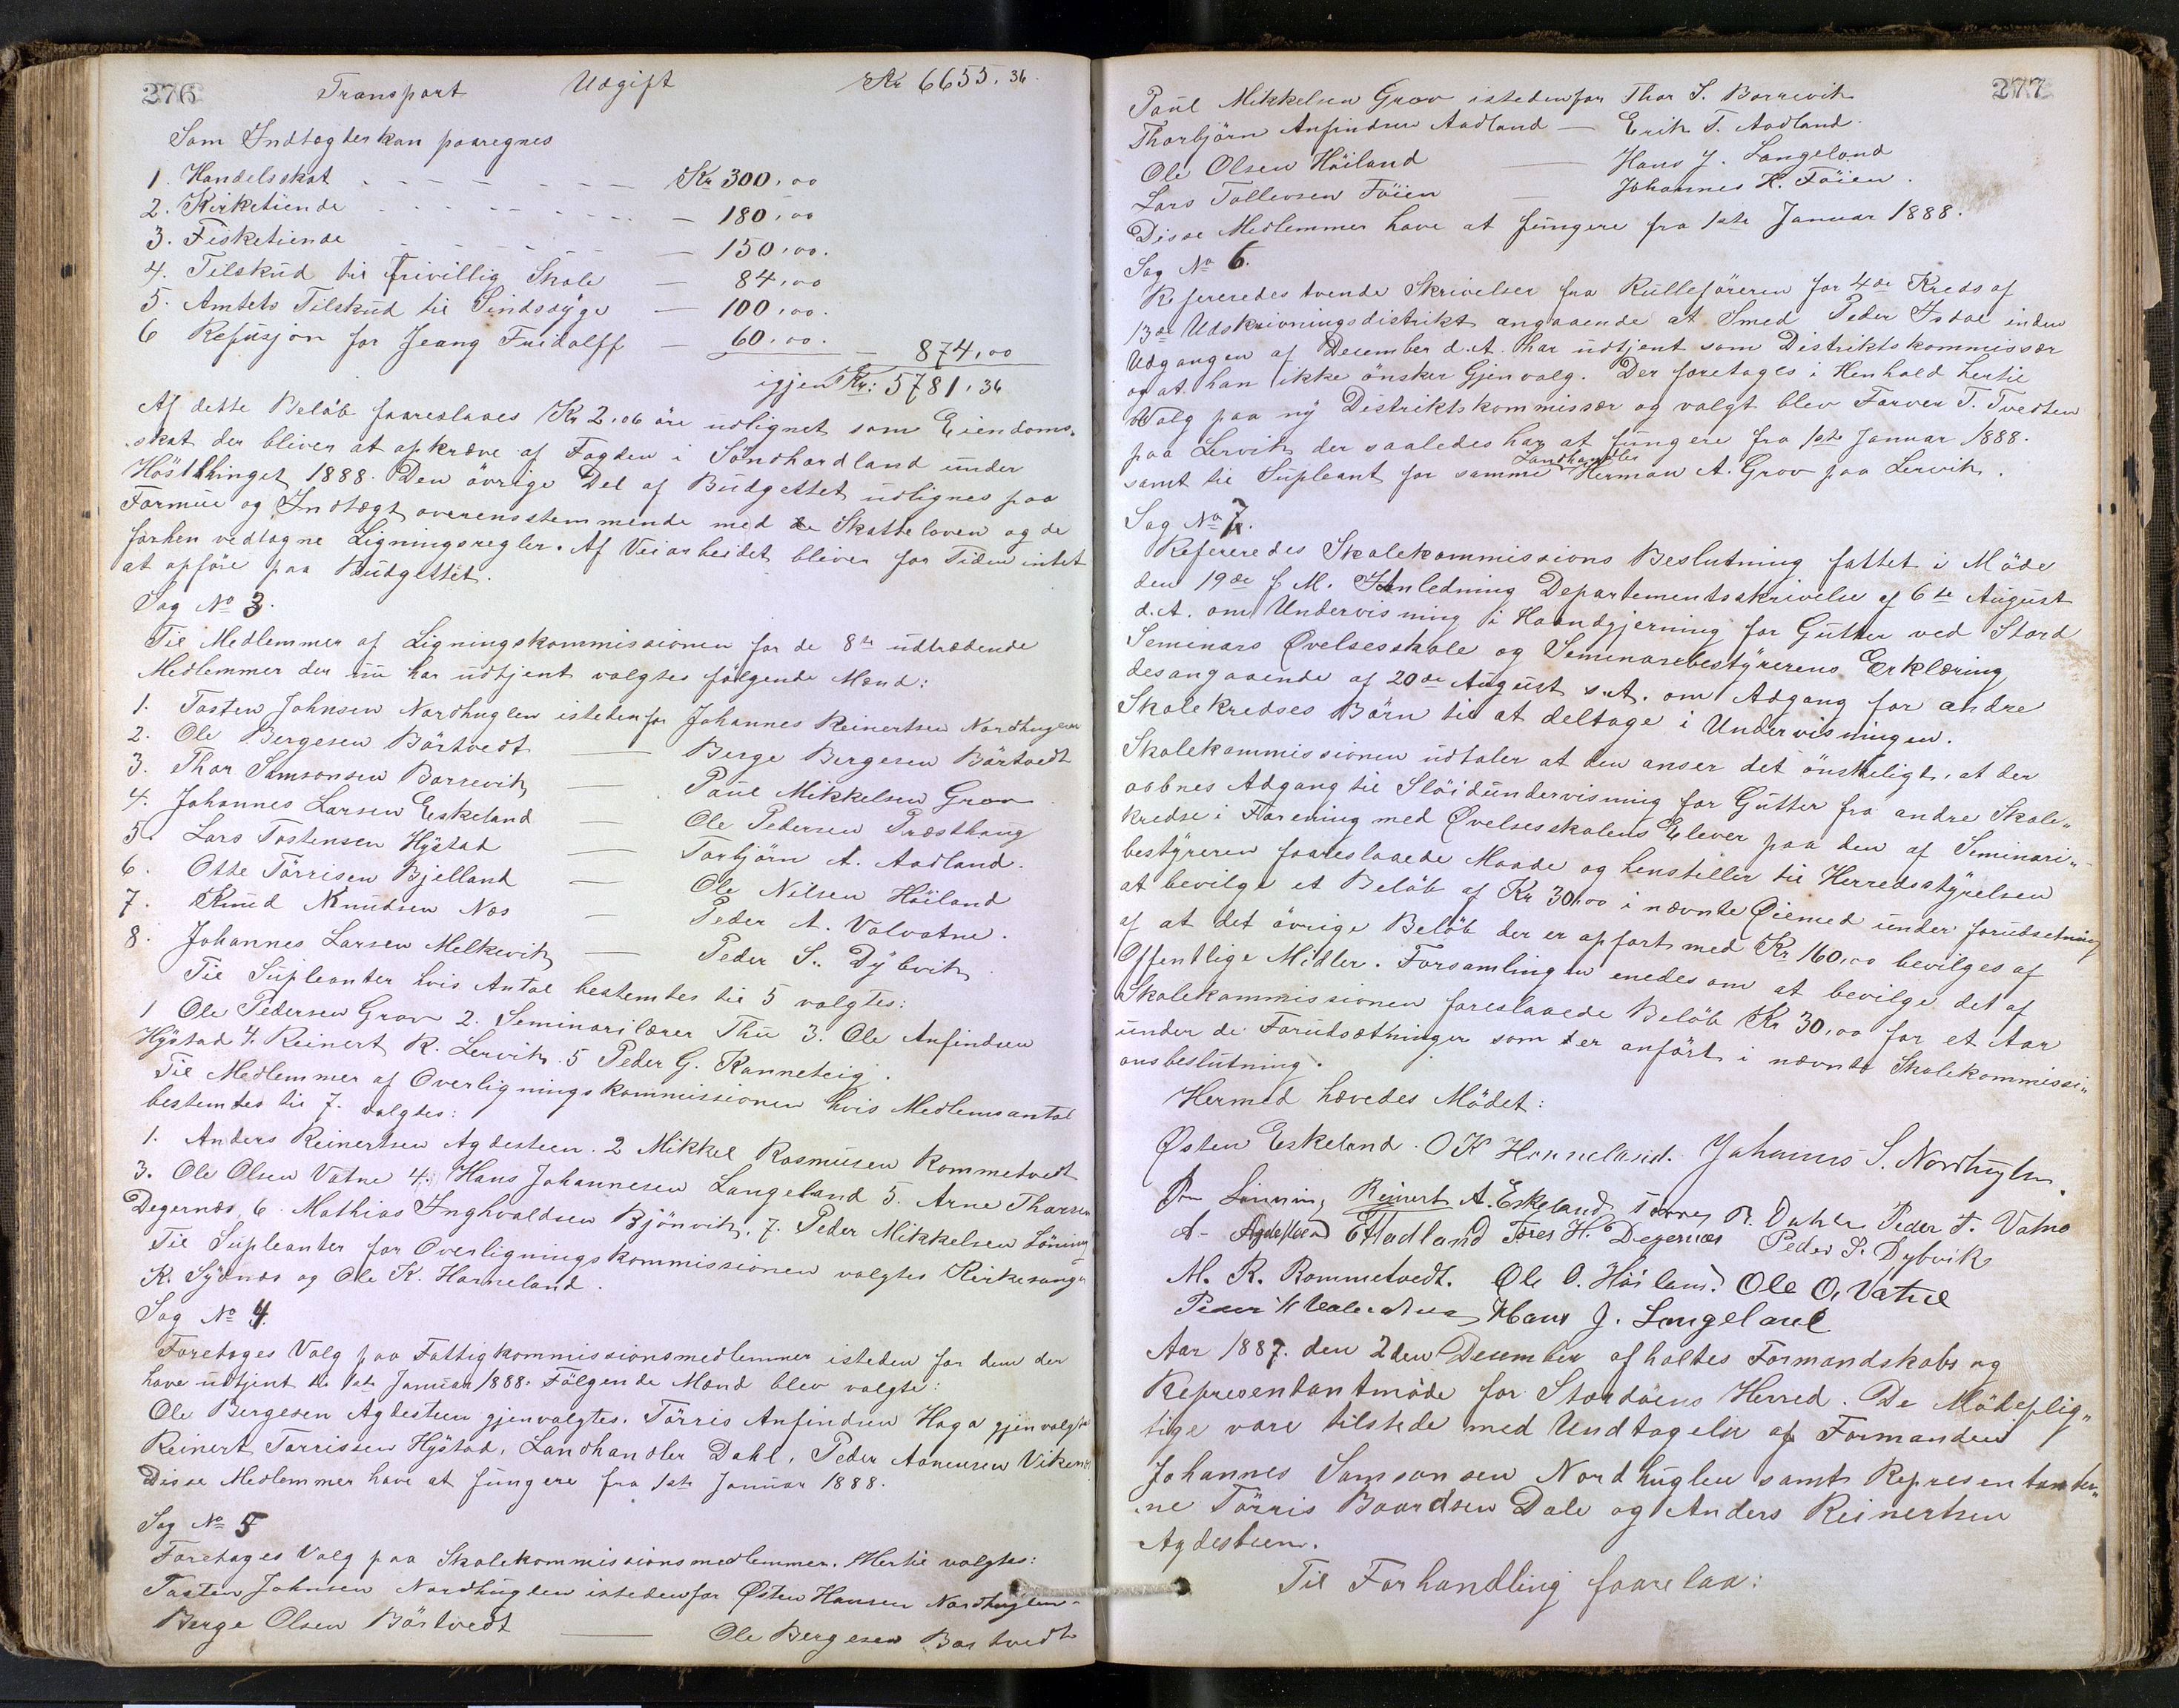 276
Transport Udgift Kr 6655.36.
Som Indtægter kan paaregnes
1. Handelsskat - - - - - - - Kr 300,00
2. Kirketiende - - - - - - - - 180,00
3. Fisketiende - - - - - - 150,00.
4. Tilskud til frivillig Skole - 84,00
5. Amtets Tilskud til Sindssÿge - 100,00.
6 Refusjon for Jeang Fridolff - 60,00. - 874,00
igjen Kr: 5781,36
Af dette Belöb foareslaaes Kr 2,06 öre udlignet som Eiendoms-
skat der bliver at opkræve af Fogden i Söndhordland under
Höstthinget 1888. Den övrige Del af Budgettet udlignes paa
Formue og Indtægt overensstemmende med de Skatteloven og de
forhen vedtagne Ligningsregler. Af Veiarbeidet bliver for Tiden intet
at opföre paa Budgettet.
Sag No 3.
Til Medlemmer af Ligningskommissionen for de 8te udtrædende
Medlemmer der nu har udtjent valgtes fölgende Mænd:
1. Tosten Johnsen Nordhuglen istedenfor Johannes Reinertsen Nordhuglen
2. Ole Bergesen Börtvedt — Berge Bergesen Börtvedt
3. Thor Samsonsen Borrevik — Paul Mikkelsen Grov
4. Johannes Larsen Eskeland — Ole Pedersen Præsthaug
5. Lars Tostensen Hÿstad — Torbjörn A. Aadland.
6. Otte Törrisen Bjelland — Ole Nilsen Höiland
7. Knud Knudsen Næs — Peder A. Valvatne.
8. Johannes Larsen Melkevik — Peder S. Dÿbvik
Til Supleanter hvis Antal bestemtes til 5 valgtes:
1 Ole Pedersen Grov 2. Seminarilærer Thu 3. Ole Anfindsen
Hÿstad 4. Reinert R. Lervik. 5 Peder G. Kanneteig.
Til Medlemmer af Overligningskommissionen hvis Medlemsantal
bestemtes til 7. valgtes:
1. Anders Reinertsen Agdesteen. 2 Mikkel Rasmusen Rommetvedt
3. Ole Olsen Vatne 4. Hans Johannesen Langeland 5. Arne Thorsen
Degernæs, 6. Mathias Inghvaldsen Bjönvik, 7. Peder Mikkelsen Löning
Til Supleanter for Overligningskommissionen valgtes Kirkesanger
K. Sÿdnæs og Ole K. Horneland.
Sag No 4.
Foretoges Valg paa Fattigkommissionsmedlemmer isteden for dem der
have udtjent til 1ste Januar 1888. Fölgende Mænd blev valgte:
Ole Bergesen Agdesteen gjenvalgtes. Törris Anfindsen Haga gjenvalgtes
Reinert Torrissen Hÿstad, Landhandler Dahl, Peder Aanensen Vikenes.
Disse Medlemmer have at fungere fra 1ste Januar 1888.
Sag No 5
Foretoges Valg paa Skolekommissionsmedlemmer. Hertil valgtes:
Tosten Johnsen Nordhuglen istedenfor Østen Hansen Nordhuglen-
Berge Olsen Börtvedt — Ole Bergesen Bortvedt
277
Paul Mikkelsen Grov istedenfor Thor S. Borrevik
Thorbjörn Anfindsen Aadland — Erik T. Aadland.
Ole Olsen Höiland — Hans J. Langeland
Lars Tollevsen Föien — Johannes H. Föien.
Disse Medlemmer have at fungere fra 1ste Januar 1888.
Sag No 6.
Refereredes tvende Skrivelser fra Rulleföreren for 4de Kreds af
13de Udskrivningsdistrikt angaaende at Smed Peder Isdal inden
Udgangen af December d.A. har udtjent som Distriktskommissær
og at han ikke önsker Gjenvalg. Der foretages i Henhold hertil
Valg paa nÿ Distriktskommissær og valgt blev Farver T. Tvedten
paa Lervik der saaledes har at fungere fra 1ste Januar 1888.
samt til Supleant for samme Landhandler Herman A. Grov paa Lervik.
Sag No 7.
Refereredes Skolekommissions Beslutning fattet i Möde
den 19de f.M. I Anledning Departementsskrivelse af 6te August
d.A. om Undervisning i Haandgjerning for Gutter ved Stord
Seminars Øvelsesskole og Seminarebestÿrerens Erklæring
desangaaende af 20de August s.A. om Adgang for andre
Skolekredses Börn til at deltage i Undervisningen.
Skolekommissionen udtaler at den anser det önskeligt, at der
aabnes Adgang til Slöidundervisning for Gutter fra andre Skole-
kredse i Forening med Øvelsesskolens Elever paa den af Seminari-
bestÿreren foareslaaede Maade og henstiller til Herredsstÿrelsen
at bevilge et Belöb af Kr 30,00 i nævnte Øiemed under forudsetning
af at det övrige Belöb der er opfört med Kr 160,00 bevilges af
Offentlige Midler. Forsamlingen enedes om at bevilge det af
Skolekommissionen foreslaaede Belöb Kr 30,00 for et Aar
under de Forudsætninger som der anfört i nævnte Skolekommissi-
onsbeslutning.
Hermed hævedes Mödet:
Østen Eskeland. OK Horneland. Johannes S. Nordhuglen.
Lönning Reinert A. Eskeland Törres B. Dahle Peder T. Vatne
A- Agdesteen ETAadland Tores H. Degernæs Peder S. Dybvik
M. R. Rommetvedt. Ole O. Höiland Ole O. Vatne
Peder A Valvatne Hans J. Langeland
Aar 1887. den 2den Desember afholtes Formandskabs og
Representantmöde for Stordöens Herred. De Mödeplig-
tige vare tilstede med Undtagelse af Formanden
Johannes Samsonsen Nordhuglen samt Representanter-
ne Törris Baardsen Dale og Anders Reinertsen
Agdesteen.
Til Forhandling foarelaa: